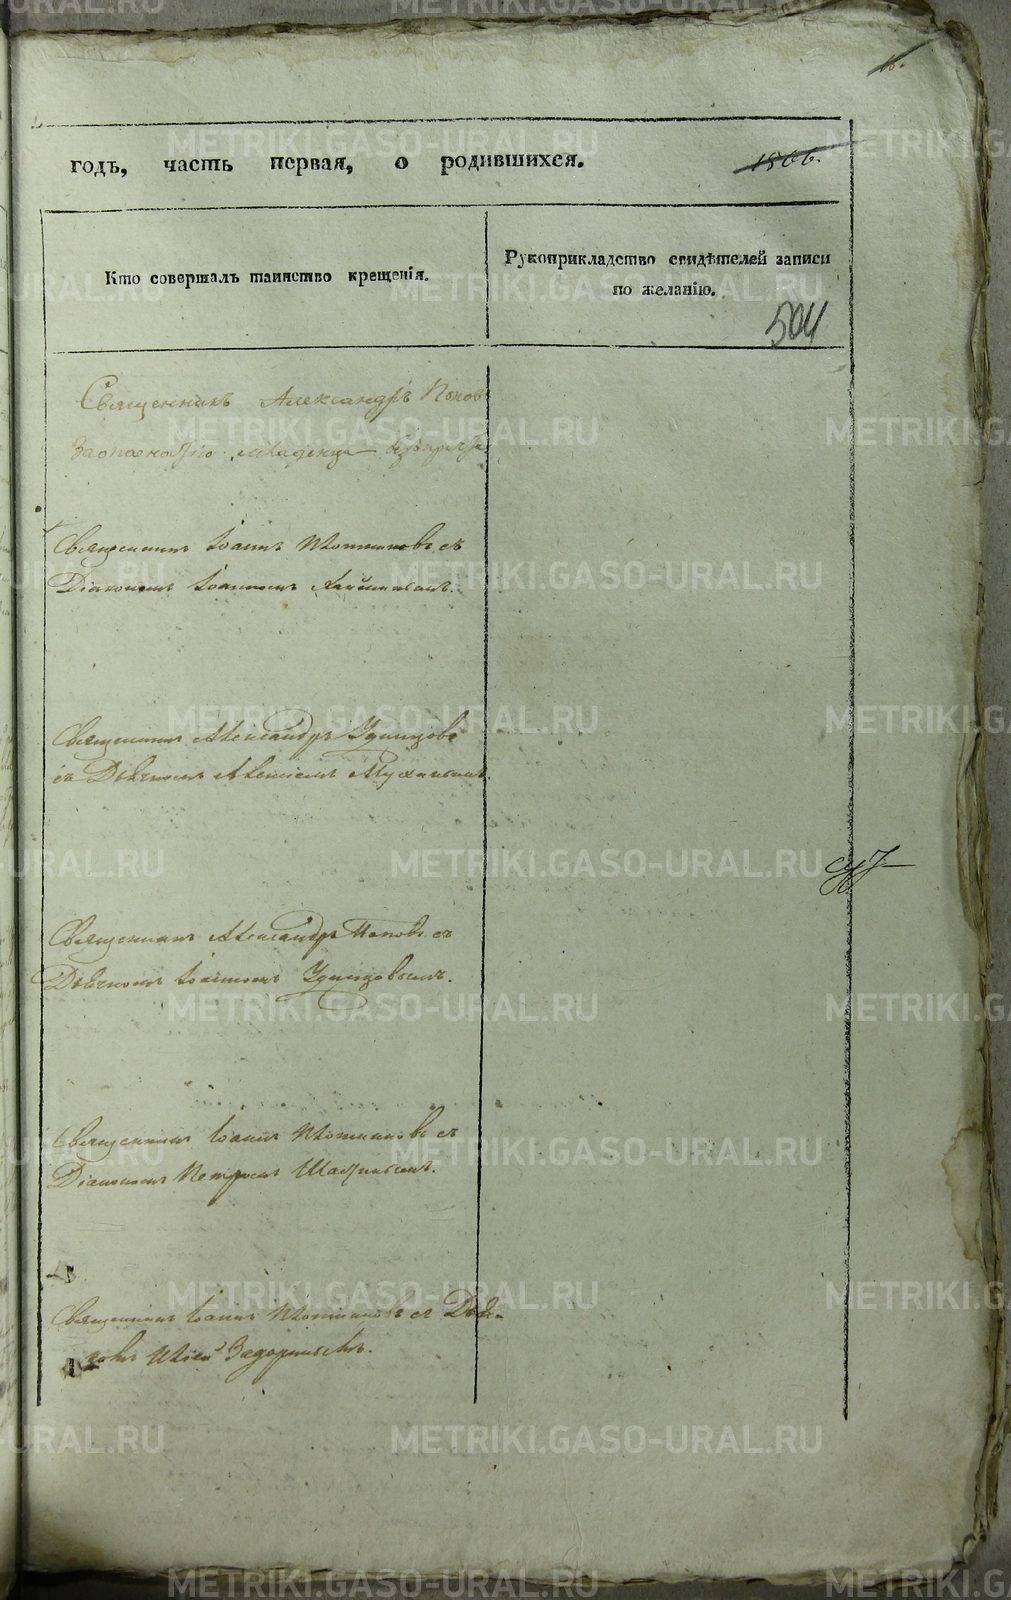 16.
годъ, часть первая, о родившихся.
1806.
Кто совершалъ таинство крещенія.
Рукоприкладство свидѣтелей записи
по желанію.
504
Священникъ Александръ Поповъ
младенца
Священникъ Іоаннъ Плотниковъ съ
Діакономъ Іоанномъ
Священникъ Александръ Удинцовъ
съ Дьячкомъ Алексіемъ Мухинымъ.
Священникъ Александръ Поповъ съ
Дьячкомъ Іоанномъ Удинцовымъ.
Священникъ Іоаннъ Плотниковъ съ
Діакономъ Петромъ
Священникъ Іоаннъ Плотниковъ съ Дьяч-
комъ
METRIKI.GASO-URAL.RU